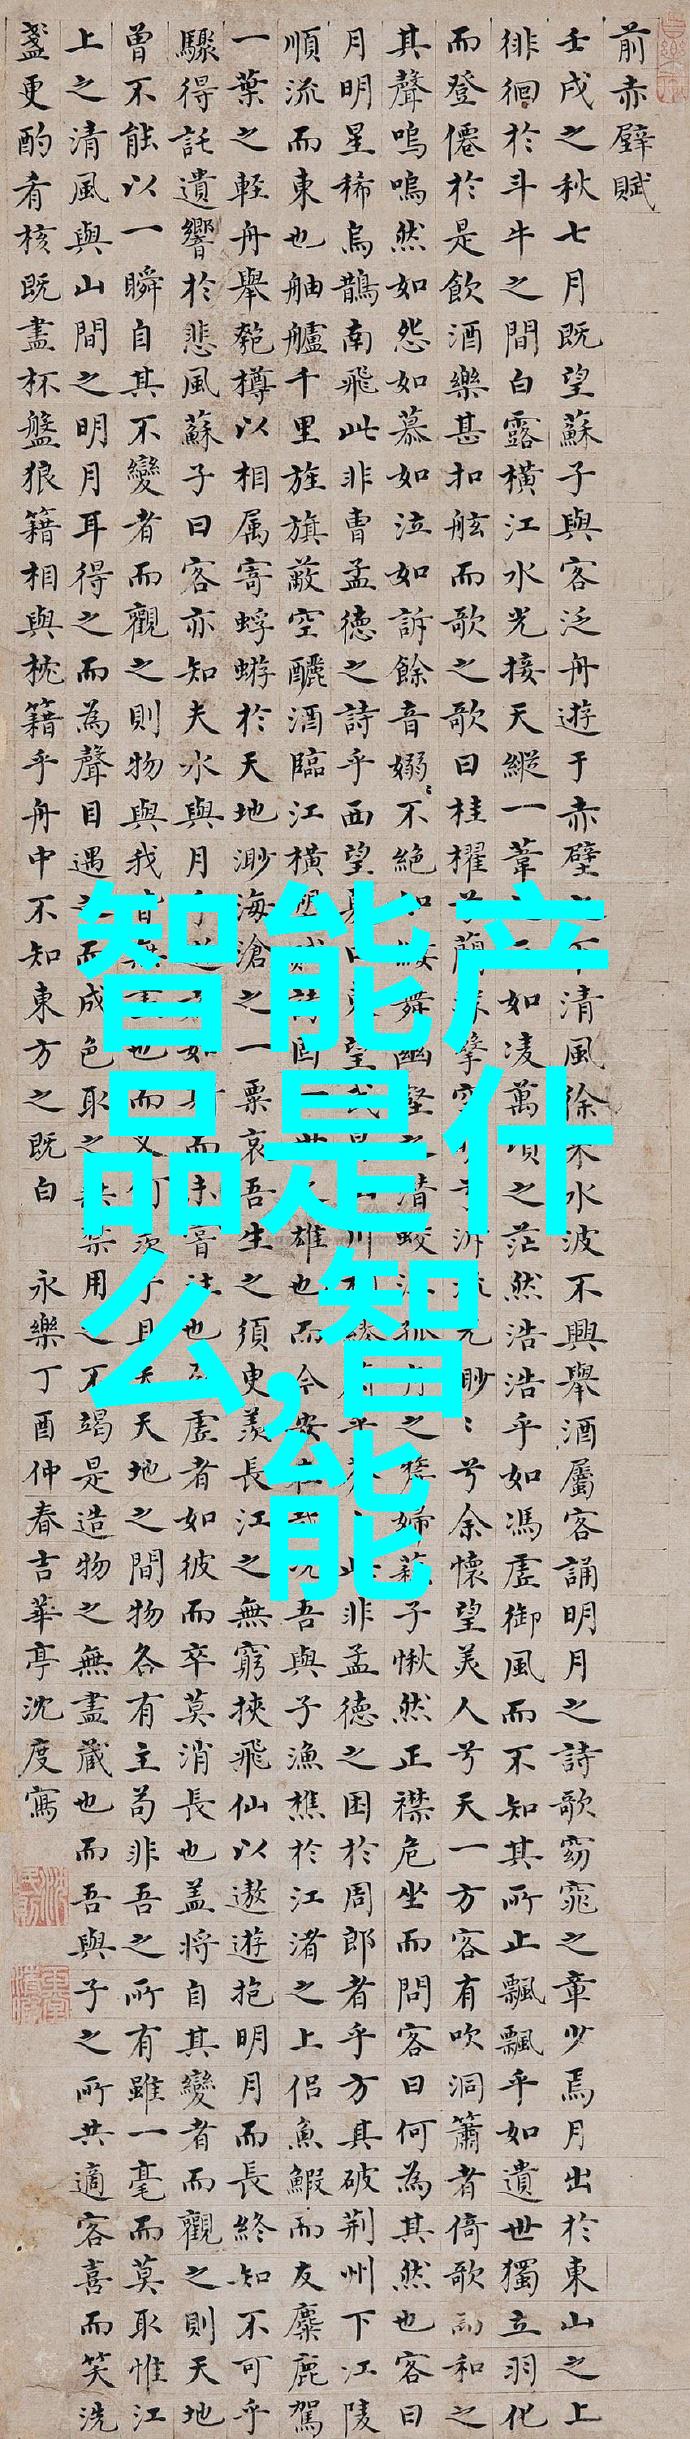 前赤壁賦
壬戌之秋七月既望蘇子與客泛舟遊于赤壁之下清風徐來水波不興舉酒屬客誦明月之詩歌窈窕之章少焉月出於東山之上
徘徊於斗牛之間白露橫江水光接天縱一葦之所如凌萬頃之茫然浩浩乎如馮虛御風而不知其所止飄飄乎如遺世獨立羽化
而登僊於是飲酒樂甚扣舷而歌之歌曰桂櫂兮蘭槳擊空明兮泝流光渺〻兮余懷望美人兮天一方客有吹洞簫者倚歌而和之
其聲嗚嗚然如怨如慕如泣如訴餘音嫋〻不絕如縷舞幽壑之潛蛟泣孤舟之嫠婦蘇子愀然正襟危坐而問客曰何為其然也客曰
月明星稀烏鵲南飛此非曹孟德之詩乎西望夏口東望武昌山川相繆鬱乎蒼〻此非孟德之困於周郎者乎方其破荊州下江陵
順流而東也舳艫千里旌旗蔽空釃酒臨江橫槊賦詩固一世之雄也而今安在哉況吾與子漁樵於江渚之上侶魚鰕而友麋鹿駕
一葉之輕舟舉匏樽以相属寄蜉蝣於天地渺海滄之一粟哀吾生之須臾羨長江之無窮挾飛仙以遨遊抱明月而長終知不可乎
驟得託遺響於悲風蘇子曰客亦知夫水與月乎逝者如斯而未嘗往也盈虛者如彼而卒莫消長也蓋將自其變者而觀之則天地
曾不能以一瞬自其不變者而觀之則物與我皆無盡也而又何羨乎且夫天地之間物各有主苟非吾之所有雖一毫而莫取惟江
上之清風與山間之明月耳得之而為聲目遇之而成色取之無禁用之不竭是造物之無盡藏也而吾與子之所共適客喜而笑洗
盞更酌肴核既盡杯盤狼籍相與枕籍乎舟中不知東方之既白 永樂丁酉仲春吉華亭沈度寫
智能产
品是什
么,智
能